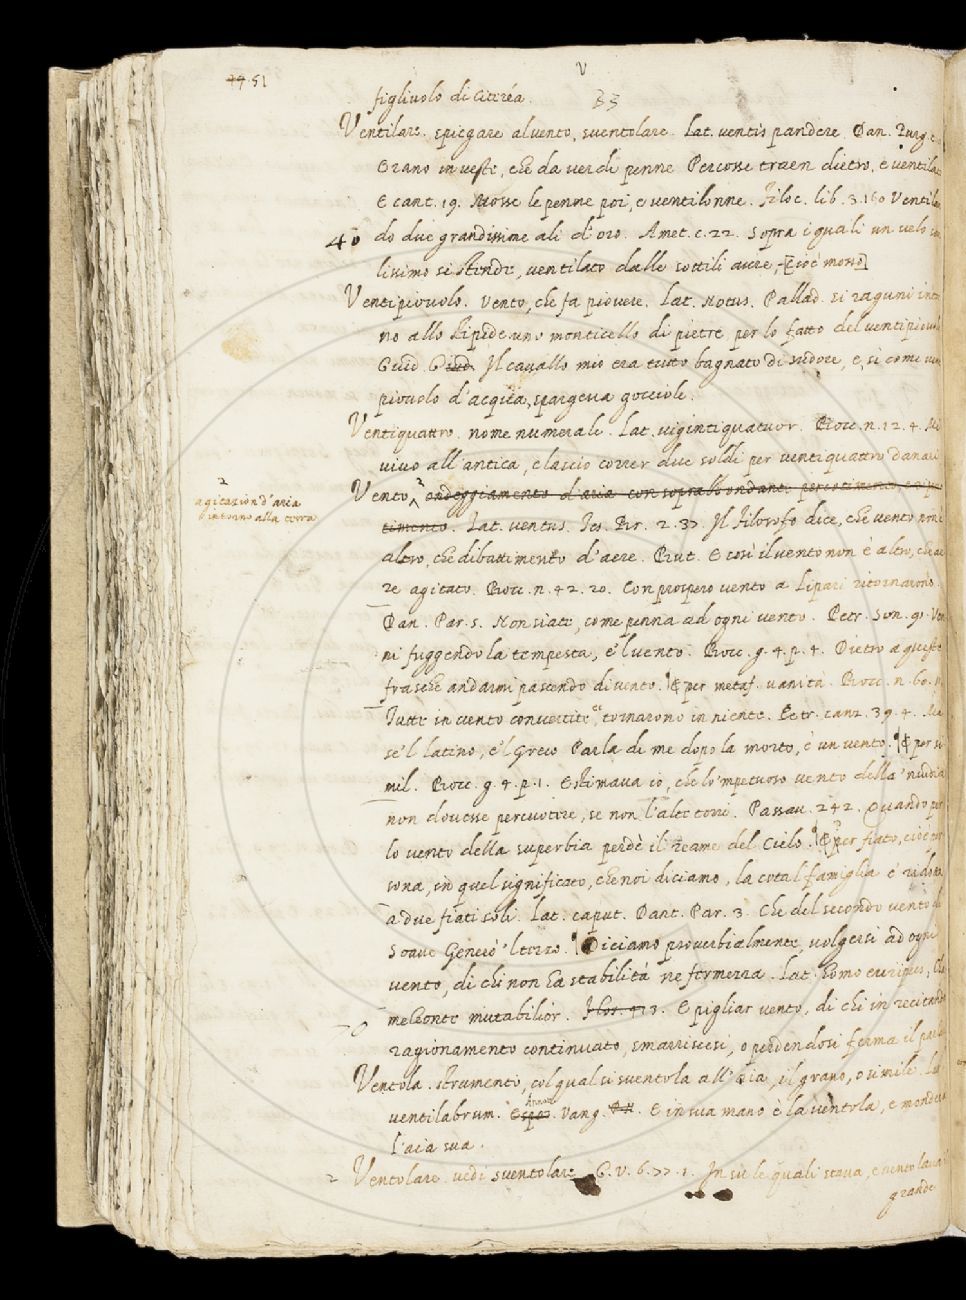 49. 51
V
B3
figliuolo di Citeréa.
Ventilare. spiegare al vento, sventolare. Lat. ventis pandere. Dan. Purg. c.
Erano in veste, che da verdi penne Percosse traen dietro, e ventilate
E cant. 19. Mosse le penne poi, e ventilonne. Filoc. lib. 3. 160 Ventilan
40
do due grandissime ali d'oro. Amet. c. 22. Sopra i quali un velo sot
lissimo si stinde, ventilato dalle sottili aure, [cioè mosso]
Ventipiouolo. Vento, che fa piovere. Lat. Notus. Pallad. si raguni intor
no allo stipide uno monticello di pietre per lo fatto del ventipiouolo
Guid. G. Il cavallo mio era tutto bagnato di sudore, e, sì come ven
piouolo d'acqua, spargeva gocciole.
Ventiquattro. nome numerale. Lat. vigintiquatuor. Bocc. n. 12. 4.
vivo all'antica, e lascio correr due soldi per ventiquattro danari
Vento, ondeggiamento d'aria con soprabbondante percotimento
2
agitazion d'aria
intorno alla terra
timento. Lat. ventus. Tes. Br. 2. 37 Il Filosofo dice, che vento non è
altro, che dibattimento d'aere. But. E così il vento non è altro, che ae
re agitato. Bocc. n. 42. 20. Con prospero vento a Lipari ritornarono.
Dan. Par. 5. Non siate, come penna ad ogni vento. Petr. Son. 91. Ven
ni fuggendo la tempesta, e 'l vento. Bocc. g. 4. p. 4. Dietro a queste
frasche andarmi pascendo di vento. & per metaf. vanità. Bocc. n. 60.
Tutte in vento convertite, tornarono in niente. Petr. canz. 39. 4. Ma
se 'l latino, e 'l Greco Parla di me dopo la morte, è un vento. & per si
mil. Bocc. g. 4. p. 1. Estimava io, che lo 'mpetuoso vento della 'nvidia
non dovesse percuotere, se non l'alte torri. Passav. 242. Quando per
lo vento della superbia perdè il reame del Cielo. & per fiato, cioè per
sona, in quel significato, che noi diciamo, la cotal famiglia è ridotta
a due fiati soli. Lat. caput. Dant. Par. 3. Che del secondo vento di
Soave Generò 'l terzo. Diciamo proverbialmente, volgersi ad ogni
vento, di chi non ha stabilità ne fermezza. Lat. homo euripus, Cha
meleonte mutabilior. E pigliar vento, di chi in recitando
ragionamento continuato, smarriscesi, o perdendosi ferma il parlar
Ventola. strumento, col qual si sventola all'aia, il grano, o simile. Lat.
ventilabrum. Vang. E in sua mano è la ventola, e monderà
l'aia sua.
2 Ventolare. vedi sventolare. G. V. 6. 77. 1. In su le quali stava, e ventolava il
grande